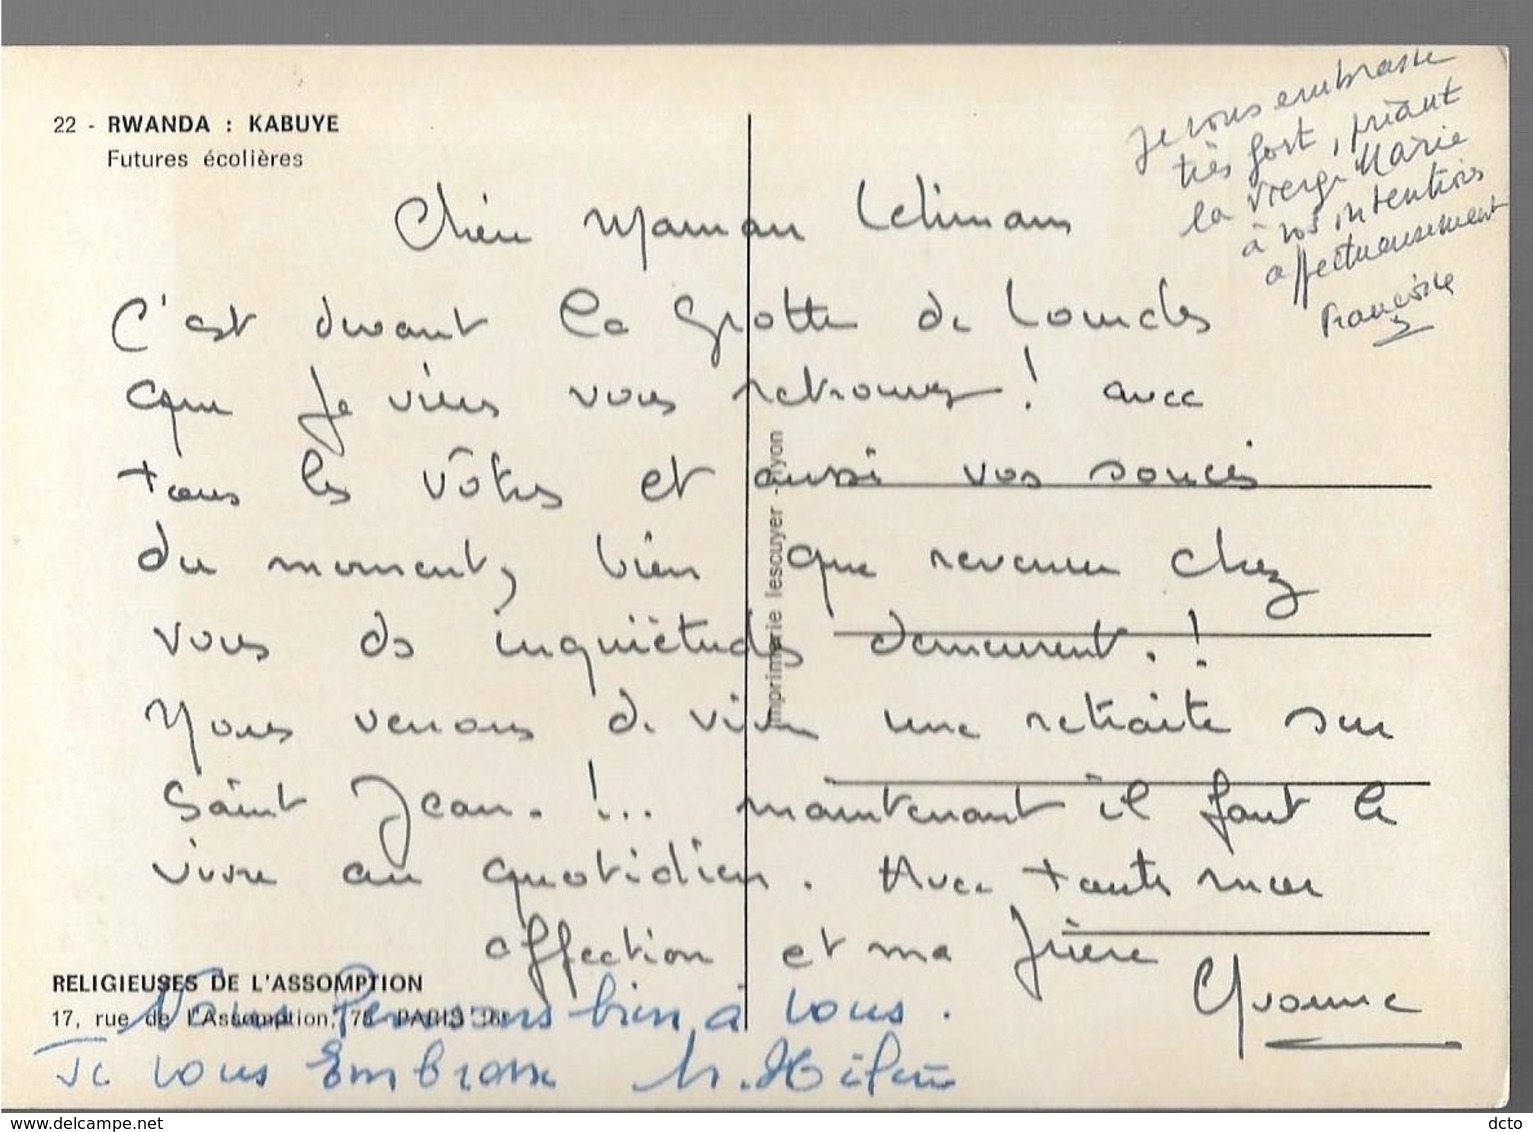 22 - RWANDA : KABUYE
Futures écolières
Je vous embrasse
très fort, priant
la Vierge Marie
à vos intentions
affectueusement
Françoise
Chère Maman
C'est devant la Grotte de Lourdes
que je viens vous retrouver ! avec
tous les vôtres et aussi vos soucis
du moment, bien que revenue chez
vous ds inquiétudes demeurent. !
Nous venons de vivre une retraite sur
Saint Jean. !... maintenant il faut le
vivre au quotidien. Avec toute mon
affection et ma prière
Yvonne
imprimerie lescuyer - lyon
RELIGIEUSES DE L'ASSOMPTION
17, rue de l'Assomption, 75 - PARIS 16e
Nous Pensons bien à vous.
Je vous Embrasse M.
www.delcampe.net
dcto